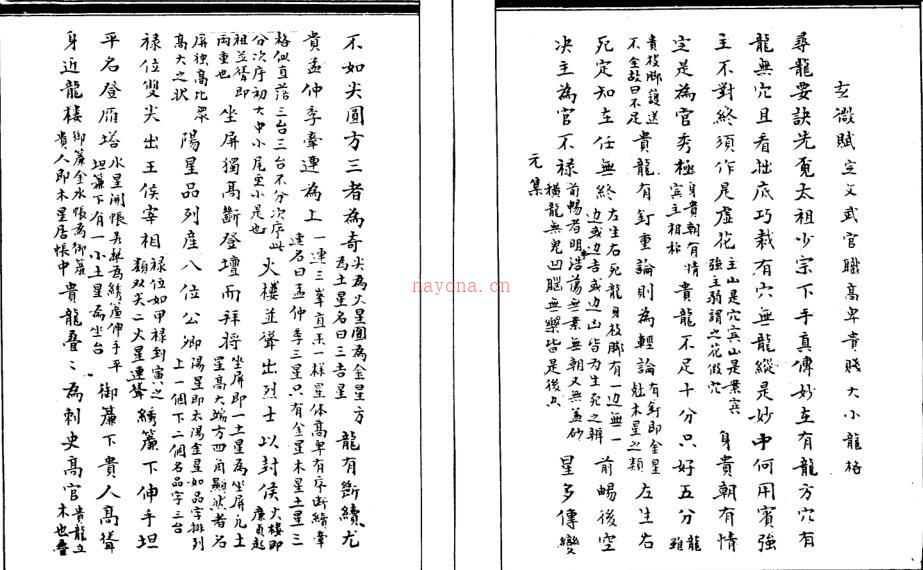 玄微賦定文武官職高卑貴賤大小龍格
尋龍要訣先覓太祖少宗下手真傳妙在有龍方穴有
龍無穴且看拙底巧裁有穴無龍縱是妙中何用賓強
主不對終須作是虛花主山是穴賓山是案賓強主弱謂之花假穴身貴朝有情
定是為官秀極身貴朝有情賓主相称貴龍不足十分只好五分龍雖
貴枝脚護送不全故曰不足貴龍有釘重論則為輕論有釘即金星尅木星之類左生右
死定知主任無終左生右死龍身枝脚有一边無一边或边吉或边凶皆為生死之辨前暢後空
決主為官不禄前暢者明浩蕩無案無朝又無蓋砂橫龍無鬼凹腦無樂皆是後空星多傳變
元集
不如尖圓方三者為奇尖為火星圓為金星方為土星名曰三吉星龍有斷續尤
貴孟仲季牽連為上一連三峯直來一樣星体高卑有序斷續牽連名曰孟仲季三星只有金星木星土星三
格似直落三台三台不分次序此分次序初大中小尾更小是也火楼並聳出烈士以封侯火楼即廉貞起
祖並聳即両重也坐屏獨高斷登壇而拜將坐屏即一土星為坐屏凡土星高大端方四角顯然者名
屏独高比眾高大之状陽星品列産八位公卿陽星即太陽金星如品字排列上一個下二個名品字三台
禄位雙尖出王侯宰相禄位如甲禄到寅之類双尖二火星連聳綉簾下伸手坦
平名登雁塔水星開帳為綉簾伸手平坦簾下有一小土星為坐台御簾下貴人高聳
身近龍楼御簾金水帳為御簾貴人即木星居帳中貴龍叠々為刺史高官貴龍立木也叠